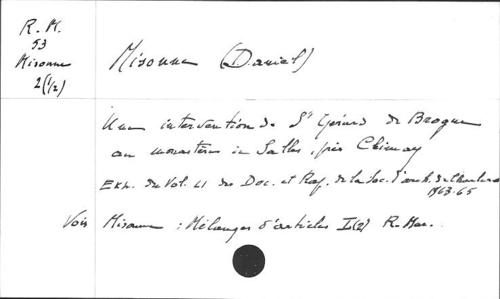 R. M.
53
Misonne
2(1/2)
Misonne (Daniel)
Une intervention de St Gérard de Brogne
au monastère de Salles, près Chimay
Extr. du Vol. LI des Doc. et Rap. de la Soc. d'arch. de Charleroi
1963-65
Voir Misonne : Mélanges d'articles I(2) R. Mon.